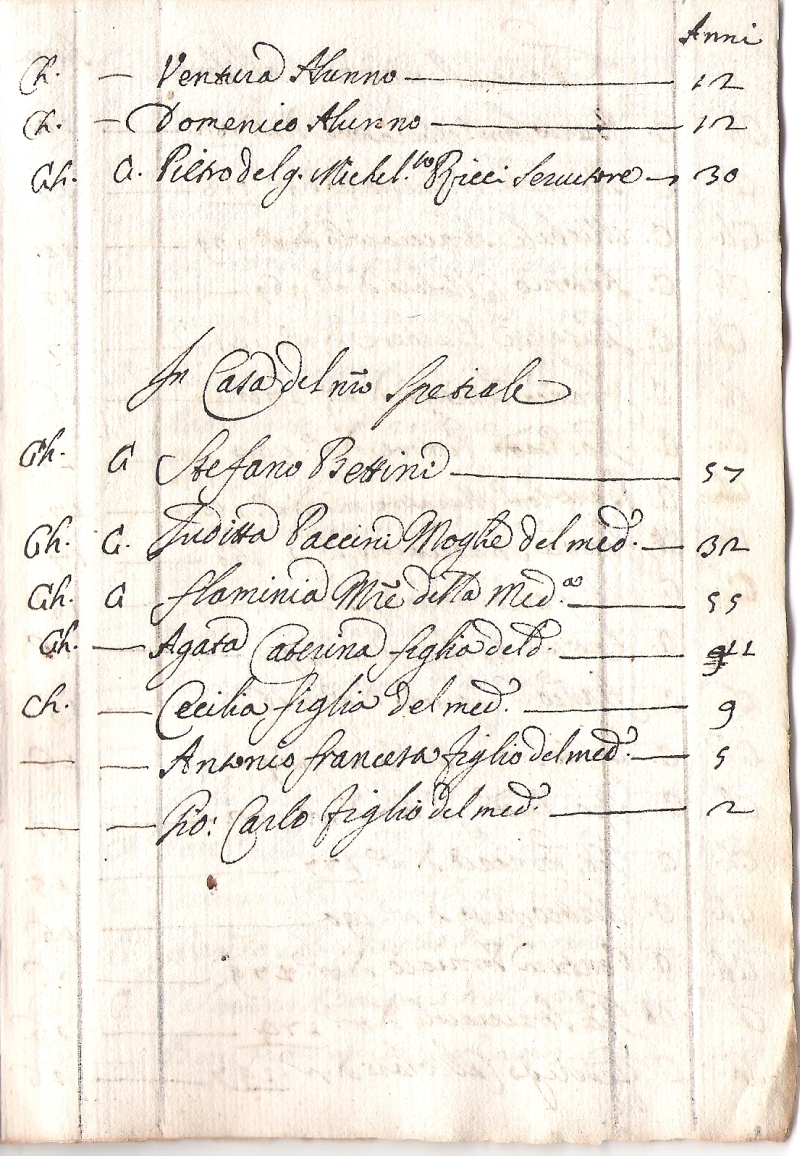 Anni
Ch. — Ventura Alunno — 12
Ch. — Domenico Alunno — 12
Ch. C. Pietro del q. Michel.to Ricci Servitore — 30
In Casa del nro Spetiale
Ch. C Stefano Bettini — 57
Ch. C. Juditta Paccini Moglie del med.o — 32
Ch. C Flaminia Mre della Med.a — 55
Ch. — Agata Caterina figlia del d.o — 11
Ch. — Cecilia figlia del med.o — 9
— — Antonio Franceso figlio del med.o — 5
— — Gio: Carlo figlio del med.o — 2